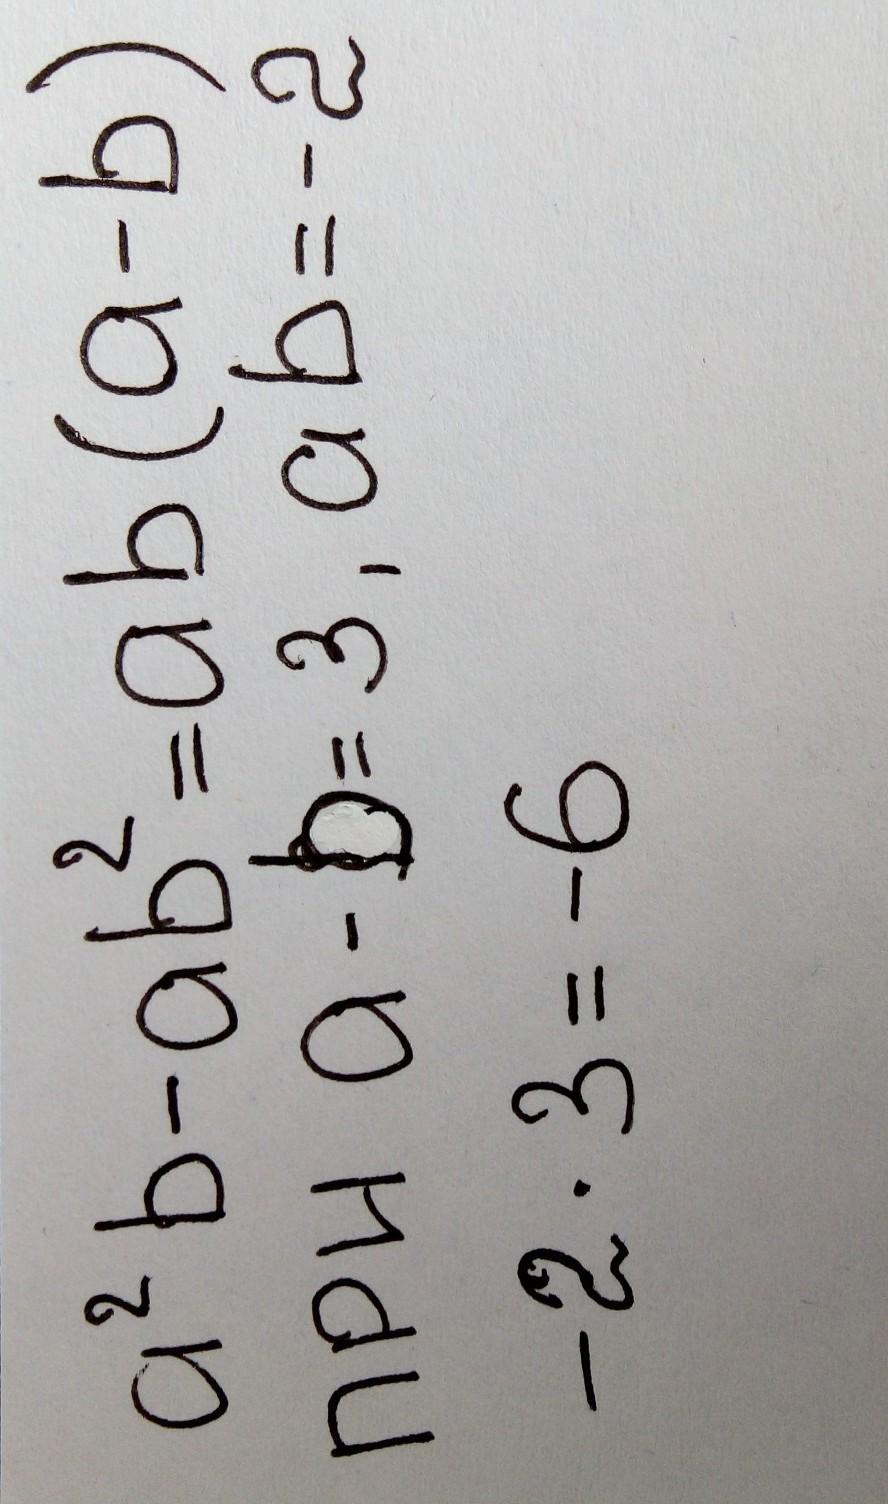 a²b-ab²=ab(a-b)
при a-b=3, ab=-2
-2·3=-6